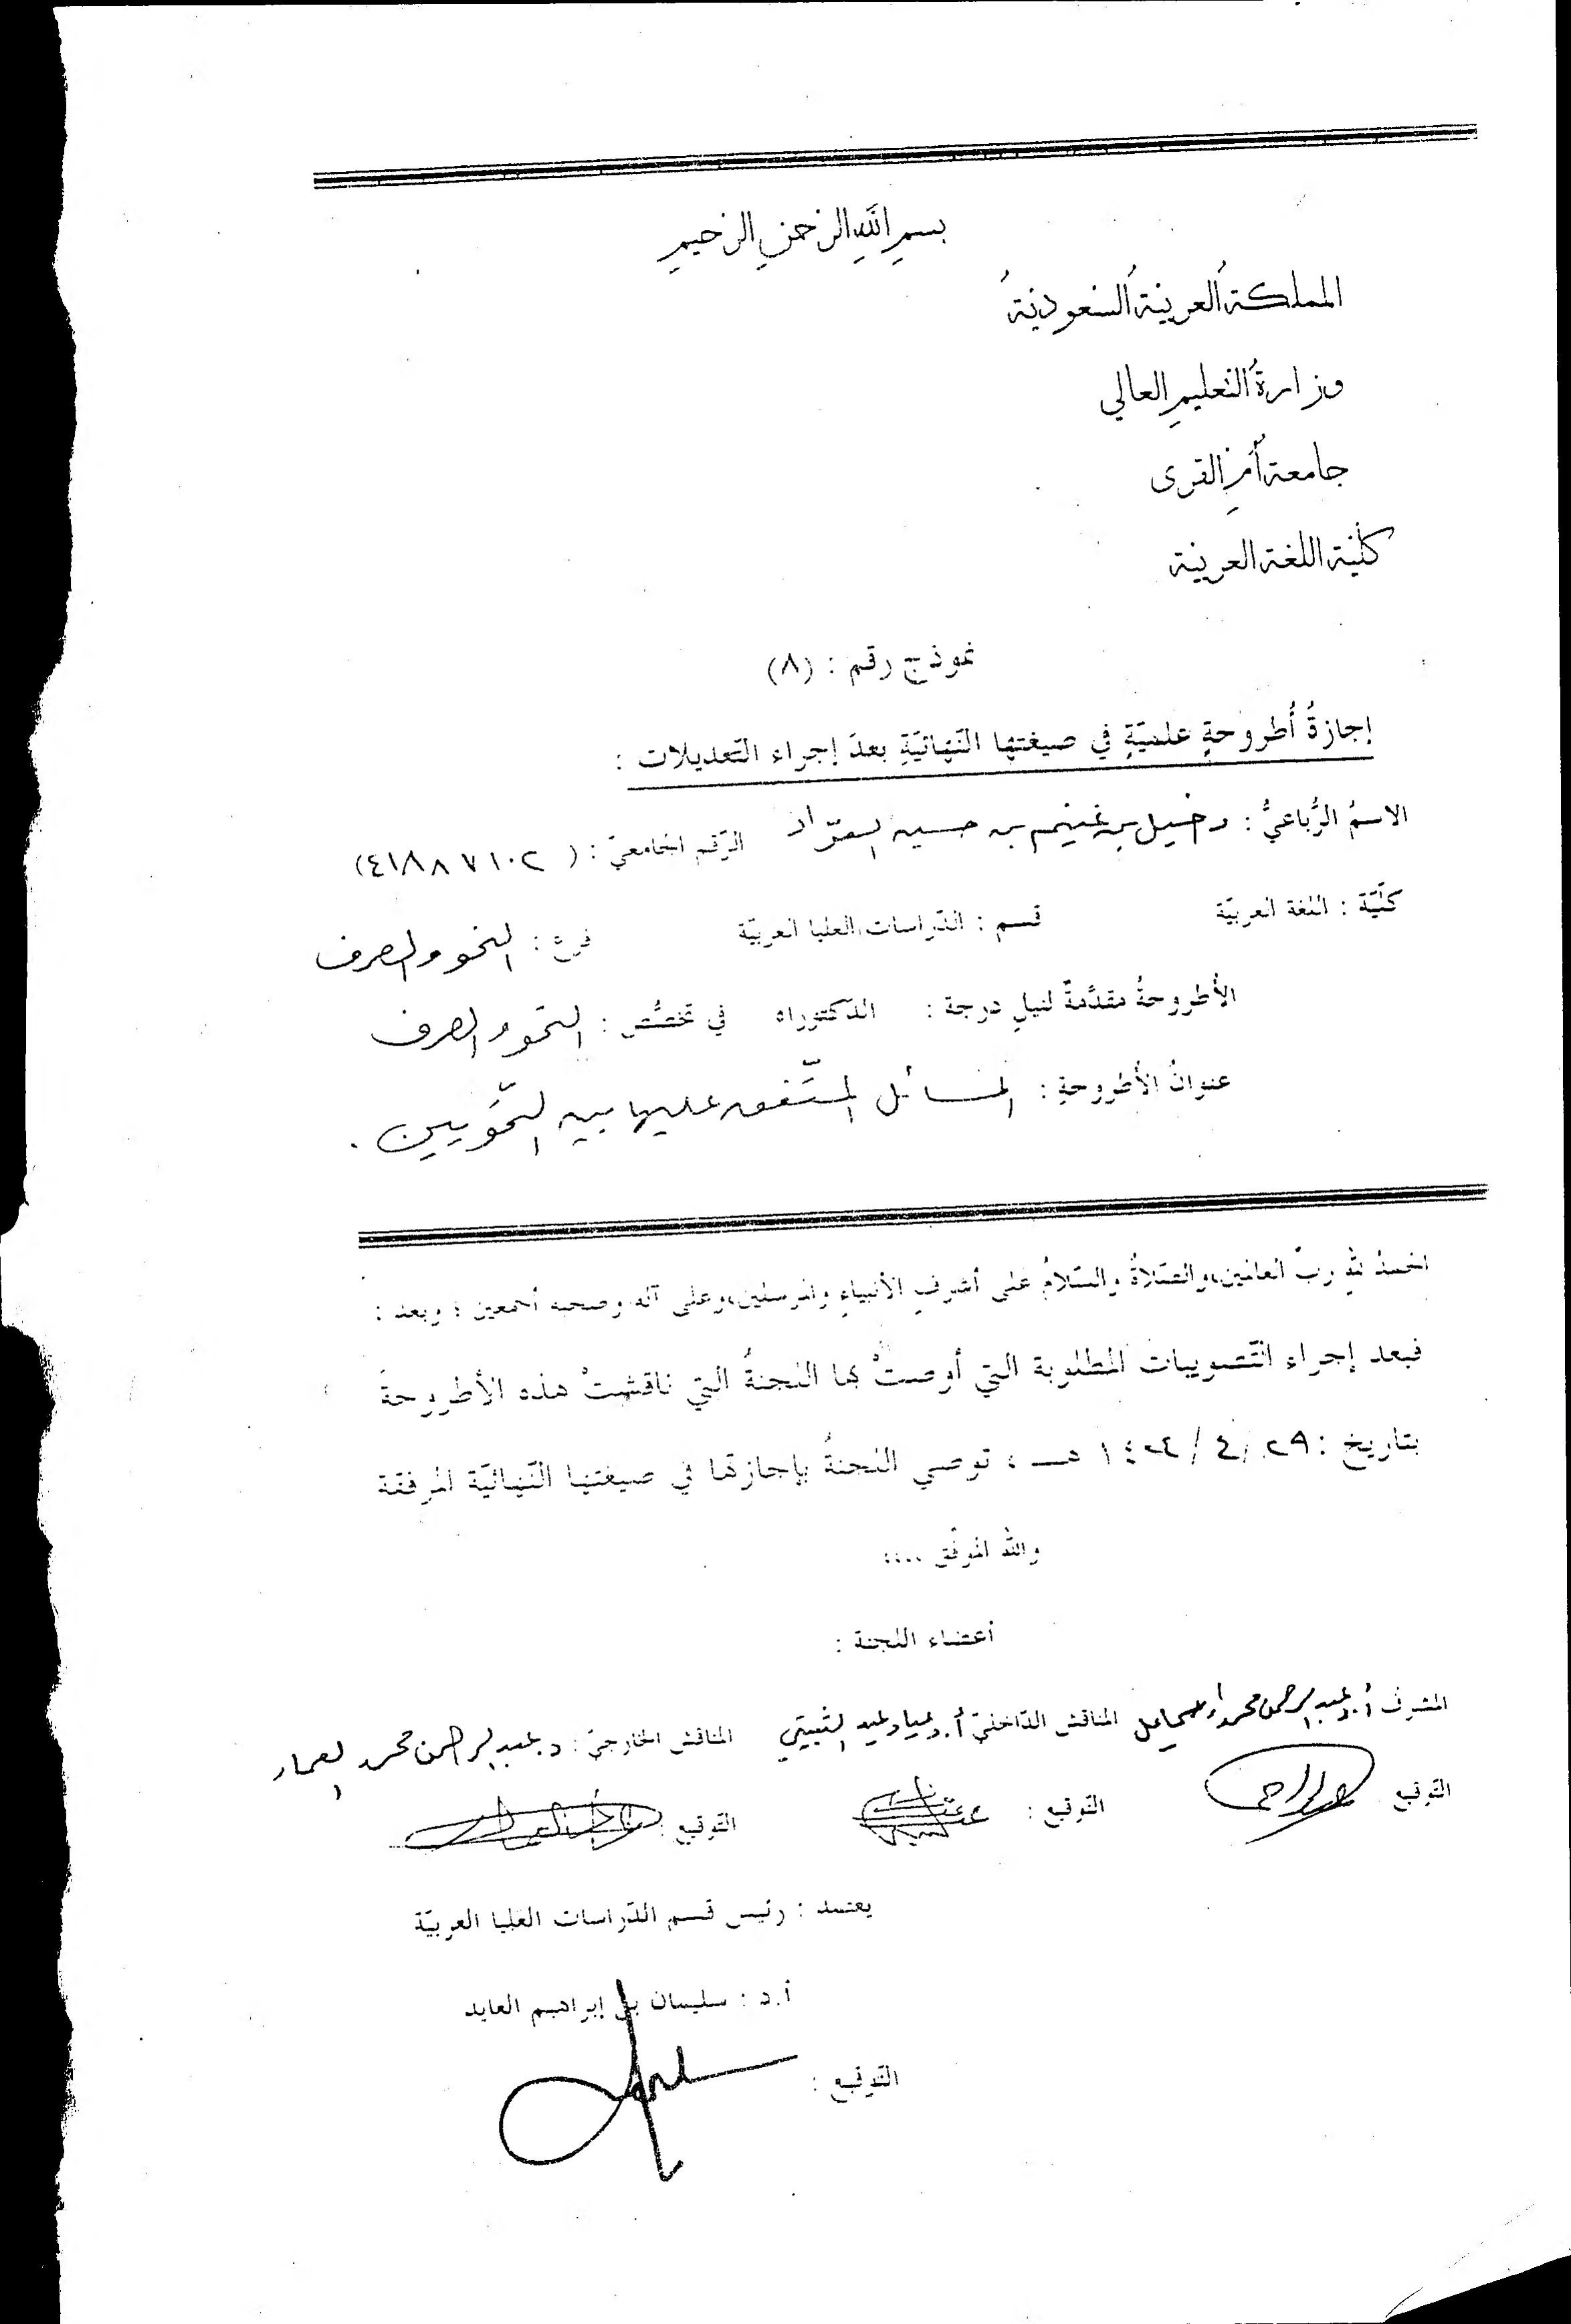 بسم الله الرحمن الرحيم
المملكة العربية السعودية
وزارة التعليم العالي
جامعة أم القرى
كلية اللغة العربية
نموذج رقم : (٨)
إجازةُ أُطروحةٍ علميّةٍ في صيغتها النّهائيّةِ بعدَ إجراء التّعديلات :
الاسمُ الرُّباعيُّ : دخيل بن غنيم بن حسين العوّاد الرّقم الجامعيّ : ( ٤١٨٨٧١٠٢)
كلّيّة : اللغة العربيّة قسم : الدّراسات العليا العربيّة فرع : النحو والصرف
الأطروحةُ مقدَّمةٌ لنيلِ درجة : الدّكتوراه في تخصُّص : النحو والصرف
عنوانُ الأطروحةِ : المسائل المتّفق عليها بين النّحويين .
الحمدُ للهِ ربّ العالمين،والصّلاةُ والسّلامُ على أشرفِ الأنبياءِ والمرسلين،وعلى آله وصحبه أجمعين ؛ وبعد :
فبعد إجراء التّصويبات المطلوبة التي أوصتْ بها اللجنةُ التي ناقشتْ هذه الأطروحةَ
بتاريخ : ٢٩ / ٤ / ١٤٢٤ هـ ، توصي اللجنةُ بإجازتها في صيغتها النّهائيّة المرفقة
والله الموفّق ....
أعضاء اللجنة :
المشرف أ.د عبد الرحمن محمد إسماعيل المناقش الدّاخليّ أ.د عياد عيد الثبيتي المناقش الخارجيّ : د. عبد الرحمن محمد العمار
التّوقيع التّوقيع : التّوقيع :
يعتمد : رئيس قسم الدّراسات العليا العربيّة
أ.د : سليمان بن إبراهيم العايد
التّوقيع :